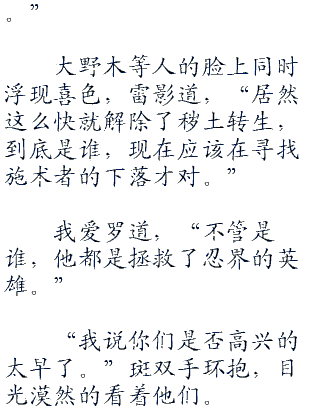 。”
大野木等人的脸上同时
浮现喜色，雷影道，“居然
这么快就解除了秽土转生，
到底是谁，现在应该在寻找
施术者的下落才对。”
我爱罗道，“不管是
谁，他都是拯救了忍界的英
雄。”
“我说你们是否高兴的
太早了。”斑双手环抱，目
光漠然的看着他们。